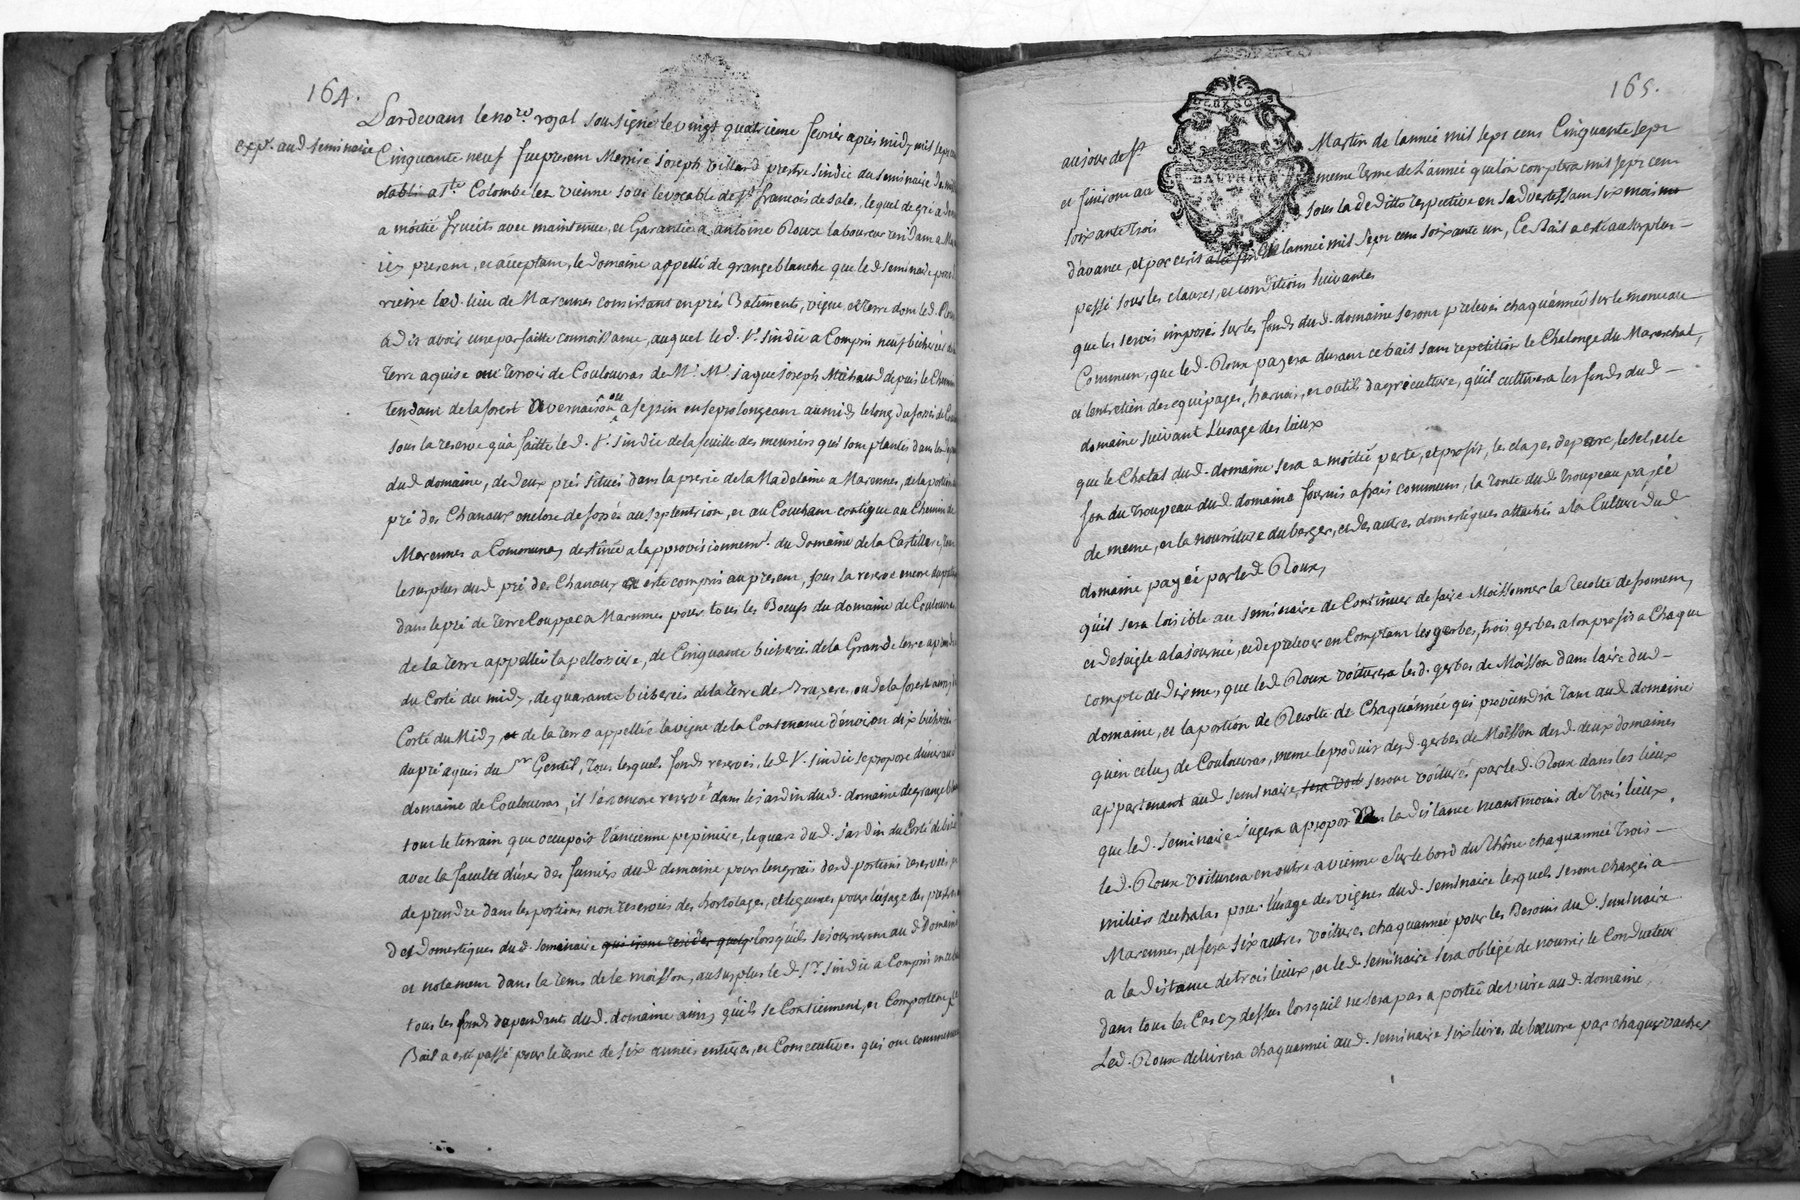 164.
Pardevant le no.re royal soussigné le vingt quatrieme fevrier apres midy mil sept cen
exp.é aud seminaire
Cinquante neuf fut present Messire Joseph Villard prestre sindic du seminaire
etabli a Ste Colombe lez vienne sous le vocable de St francois de Sales, lequel de gré a
a moitié fruits avec maintenue, et Garantie a antoine Roux laboureur residant a
present, et acceptant, le domaine appellé de grange blanche que le d seminaire
rieire led. lieu de Marennes consistant en prés Batiments, vigne, et terre dont le d.
a dit avoir une parfaitte connoissance, auquel le d. Sr. sindic a Compris neuf bicherées
terre aquise au terroir de Coulouras de Mr. Me. Jaque Joseph Michaud depuis le Chemin
tendant de la forest a vernaison ou a sepin en se prolongeant au midy le long du fossé de
sous la reserve qu'a faitte le d. Sr. sindic de la feuille des meuriers qui sont plantés dans les
dud domaine, de deux prés situés dans la prerie de la Madelaine a Marennes, de la portion
pré des Chanaux enclose de fossés au septentrion, et au Couchant contigue au Chemin de
Marennes a Communay destinée a lapprovisionnemt. du domaine de la Castillere,
le surplus dud pré des Chanaux esté compris au present, sous la reserve encore du
dans le pré de terre Couppa a Marennes pour tous les Boeufs du domaine de Coulouras,
de la terre appellée la pellonniere, de Cinquante bicherées de la Grande terre a prendre
du Corté du midy, de quarante bicherées de la terre de Brayeres, ou de la forest aussi
Corté du Midy et de la terre appellée la vigne de la Contenance d'environ dix bicherées
du pré aquis du Sr Gentil, tous lesquels fonds reservés, le d Sr. sindic se propose dunir au d
domaine de Coulouras, il s'est encore reservé dans le jardin du d. domaine de grange
tout le terrain que occupoit l'ancienne pepiniere, le quart du d. jardin du Corté de
avec la faculté d'user des fumiers du d domaine pour lengrais des d portions reservées,
de prendre dans les portions non reservées des hortolages, et legumes pour l'usage des
Det domestiques du d. seminaire qui iront resider quelq lorsqu'ils sejourneront au d Domaine
et notament dans le tems de la moisson, au surplus le d Sr. sindic a Compris
tous les fonds dependants du d. domaine ainsy qu'ils se Contiennent, et Comportent
Bail a esté passé pour le terme de six années entieres, et Consecutives qui ont commencé
165.
DAUPHINÉ
au jour de St Martin de lannée mil sept cent Cinquante sept
et finiront au meme terme de Lannée que lon comptera mil sept cent
soixante trois sous la deditte respective en s'advertissant six mois
d'avance, et par ecris a la fin de lannée mil sept cent soixante un, Ce Bail a esté au surplus
passé sous les clauses, et conditions suivantes
que les servis imposés sur les fonds du d. domaine seront prelevés chaquannée sur le monceau
Commun, que le d. Roux payera durant ce bail sans repetition le Chalonge du Mareschal,
et l'entretien des equipages, harnois, et outils d'agriculture, qu'il cultivera les fonds du d
domaine suivant L'usage des lieux
que le Chatal du d. domaine sera a moitié perte, et profit, les clayes de parc, le sel, et le
son du troupeau du d. domaine fournis a frais communs, la tonte du d troupeau payée
de meme, et la nourriture du berger, et des autres domestiques attachés a la Culture du d
domaine payée par le d Roux,
qu'il sera loisible au seminaire de Continuer de faire Moissonner la recolte de froment,
et de seigle a la journée, et de prelever en Comptant les gerbes, trois gerbes a son profit a Chaque
compte de dixme, que le d Roux voiturera les d. gerbes de Moisson dans laire du d
domaine, et la portion de Recolte de Chaquannée qui proviendra tant au d domaine
qu'en celuy de Coulouras, meme le produit des d. gerbes de Moisson des d deux domaines
appartenant au d. seminaire, sera voit seront voiturés par le d. Roux dans les lieux
que le d. seminaire jugera a propos la distance neantmoins de trois lieux,
le d. Roux voiturera en outre a vienne sur le bord du Rhône chaquannée trois
miliers dechalas pour l'usage des vignes du d. seminaire lesquels seront chargés a
Marennes, et fera six autres voitures chaquannée pour les Besoins du d. seminaire
a la distance de trois lieux, et le d. seminaire sera obligé de nourrir le Conducteur
dans tous les Cas cy dessus lorsquil ne sera pas a portée de vivre au d. domaine,
Le d. Roux delivrera chaquannée au d. seminaire six livres de beurre par chaque vaches